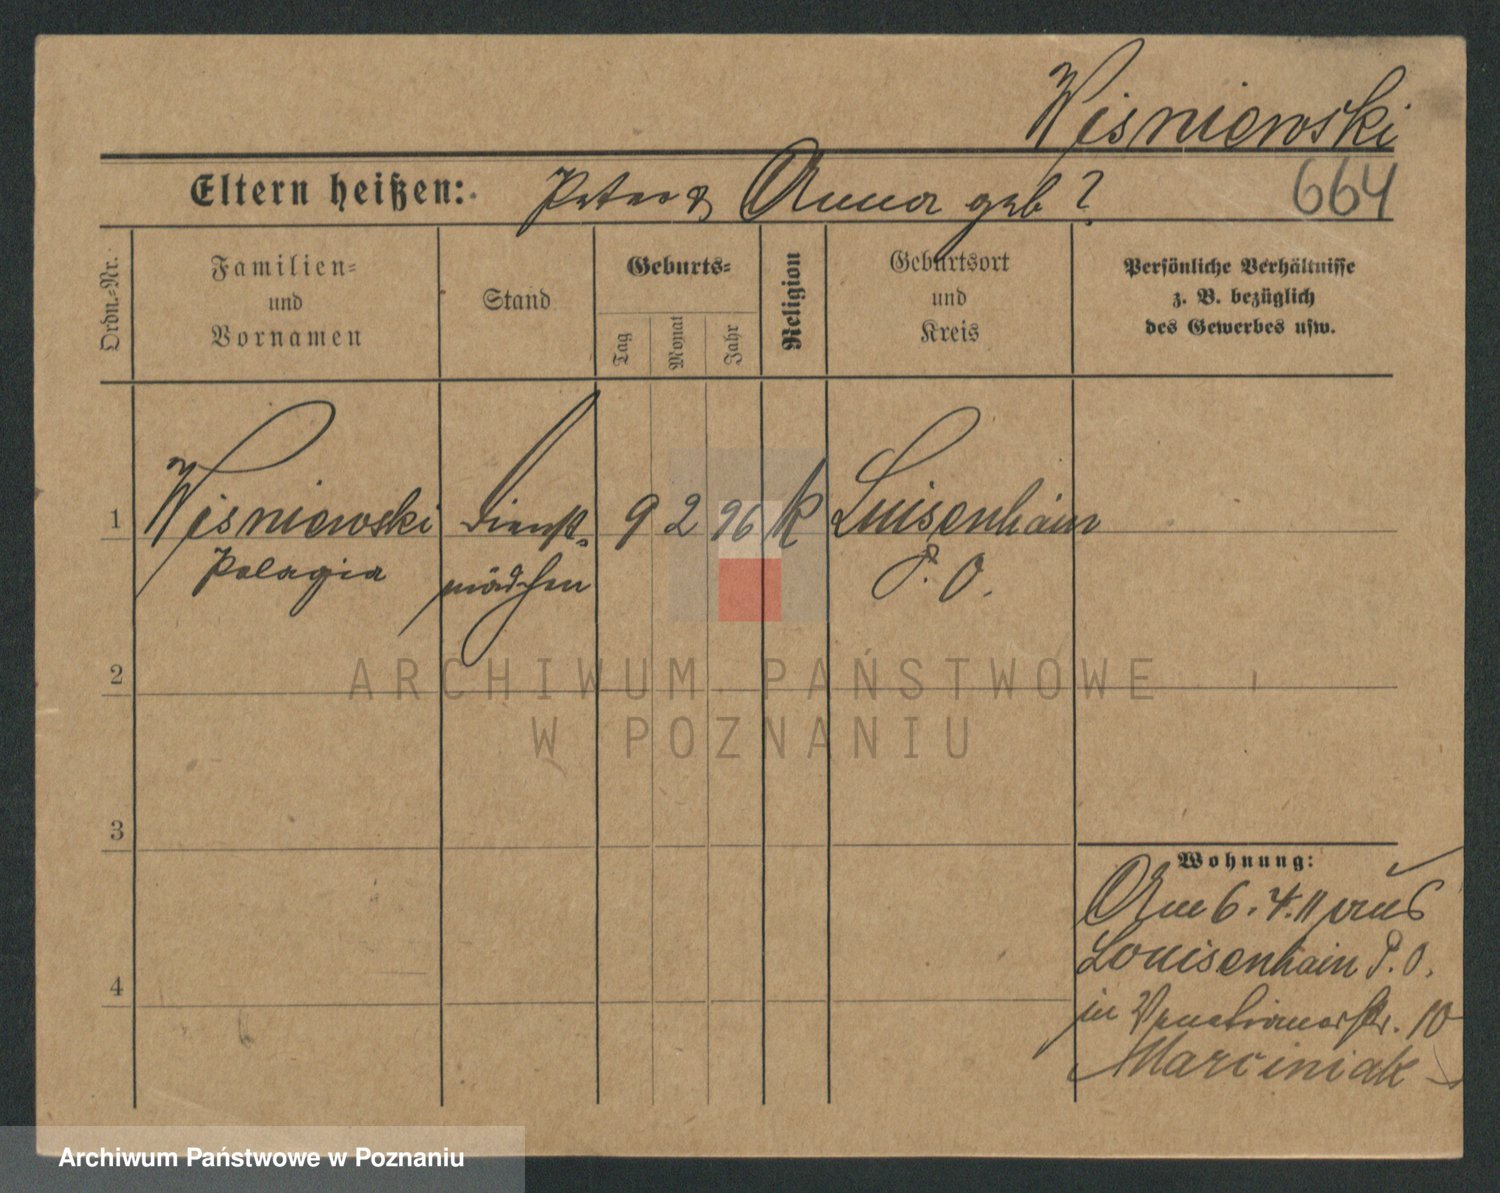 Wisniewski
Eltern heißen: Peter & Anna geb ?
664
Ordn.-Nr.
Familien-
und
Vornamen
Stand
Geburts-
Tag
Monat
Jahr
Religion
Geburtsort
und
Kreis
Persönliche Verhältnisse
z. B. bezüglich
des Gewerbes usw.
1 Wisniewski Dienst- 9 2 96 k Luisenhain
Pelagia mädchen P. O.
2
3
4
Wohnung:
Am 6. 4. 11 aus
Louisenhain P. O.
in Venetianerstr. 10
Marciniak
ARCHIWUM PAŃSTWOWE
W POZNANIU
Archiwum Państwowe w Poznaniu